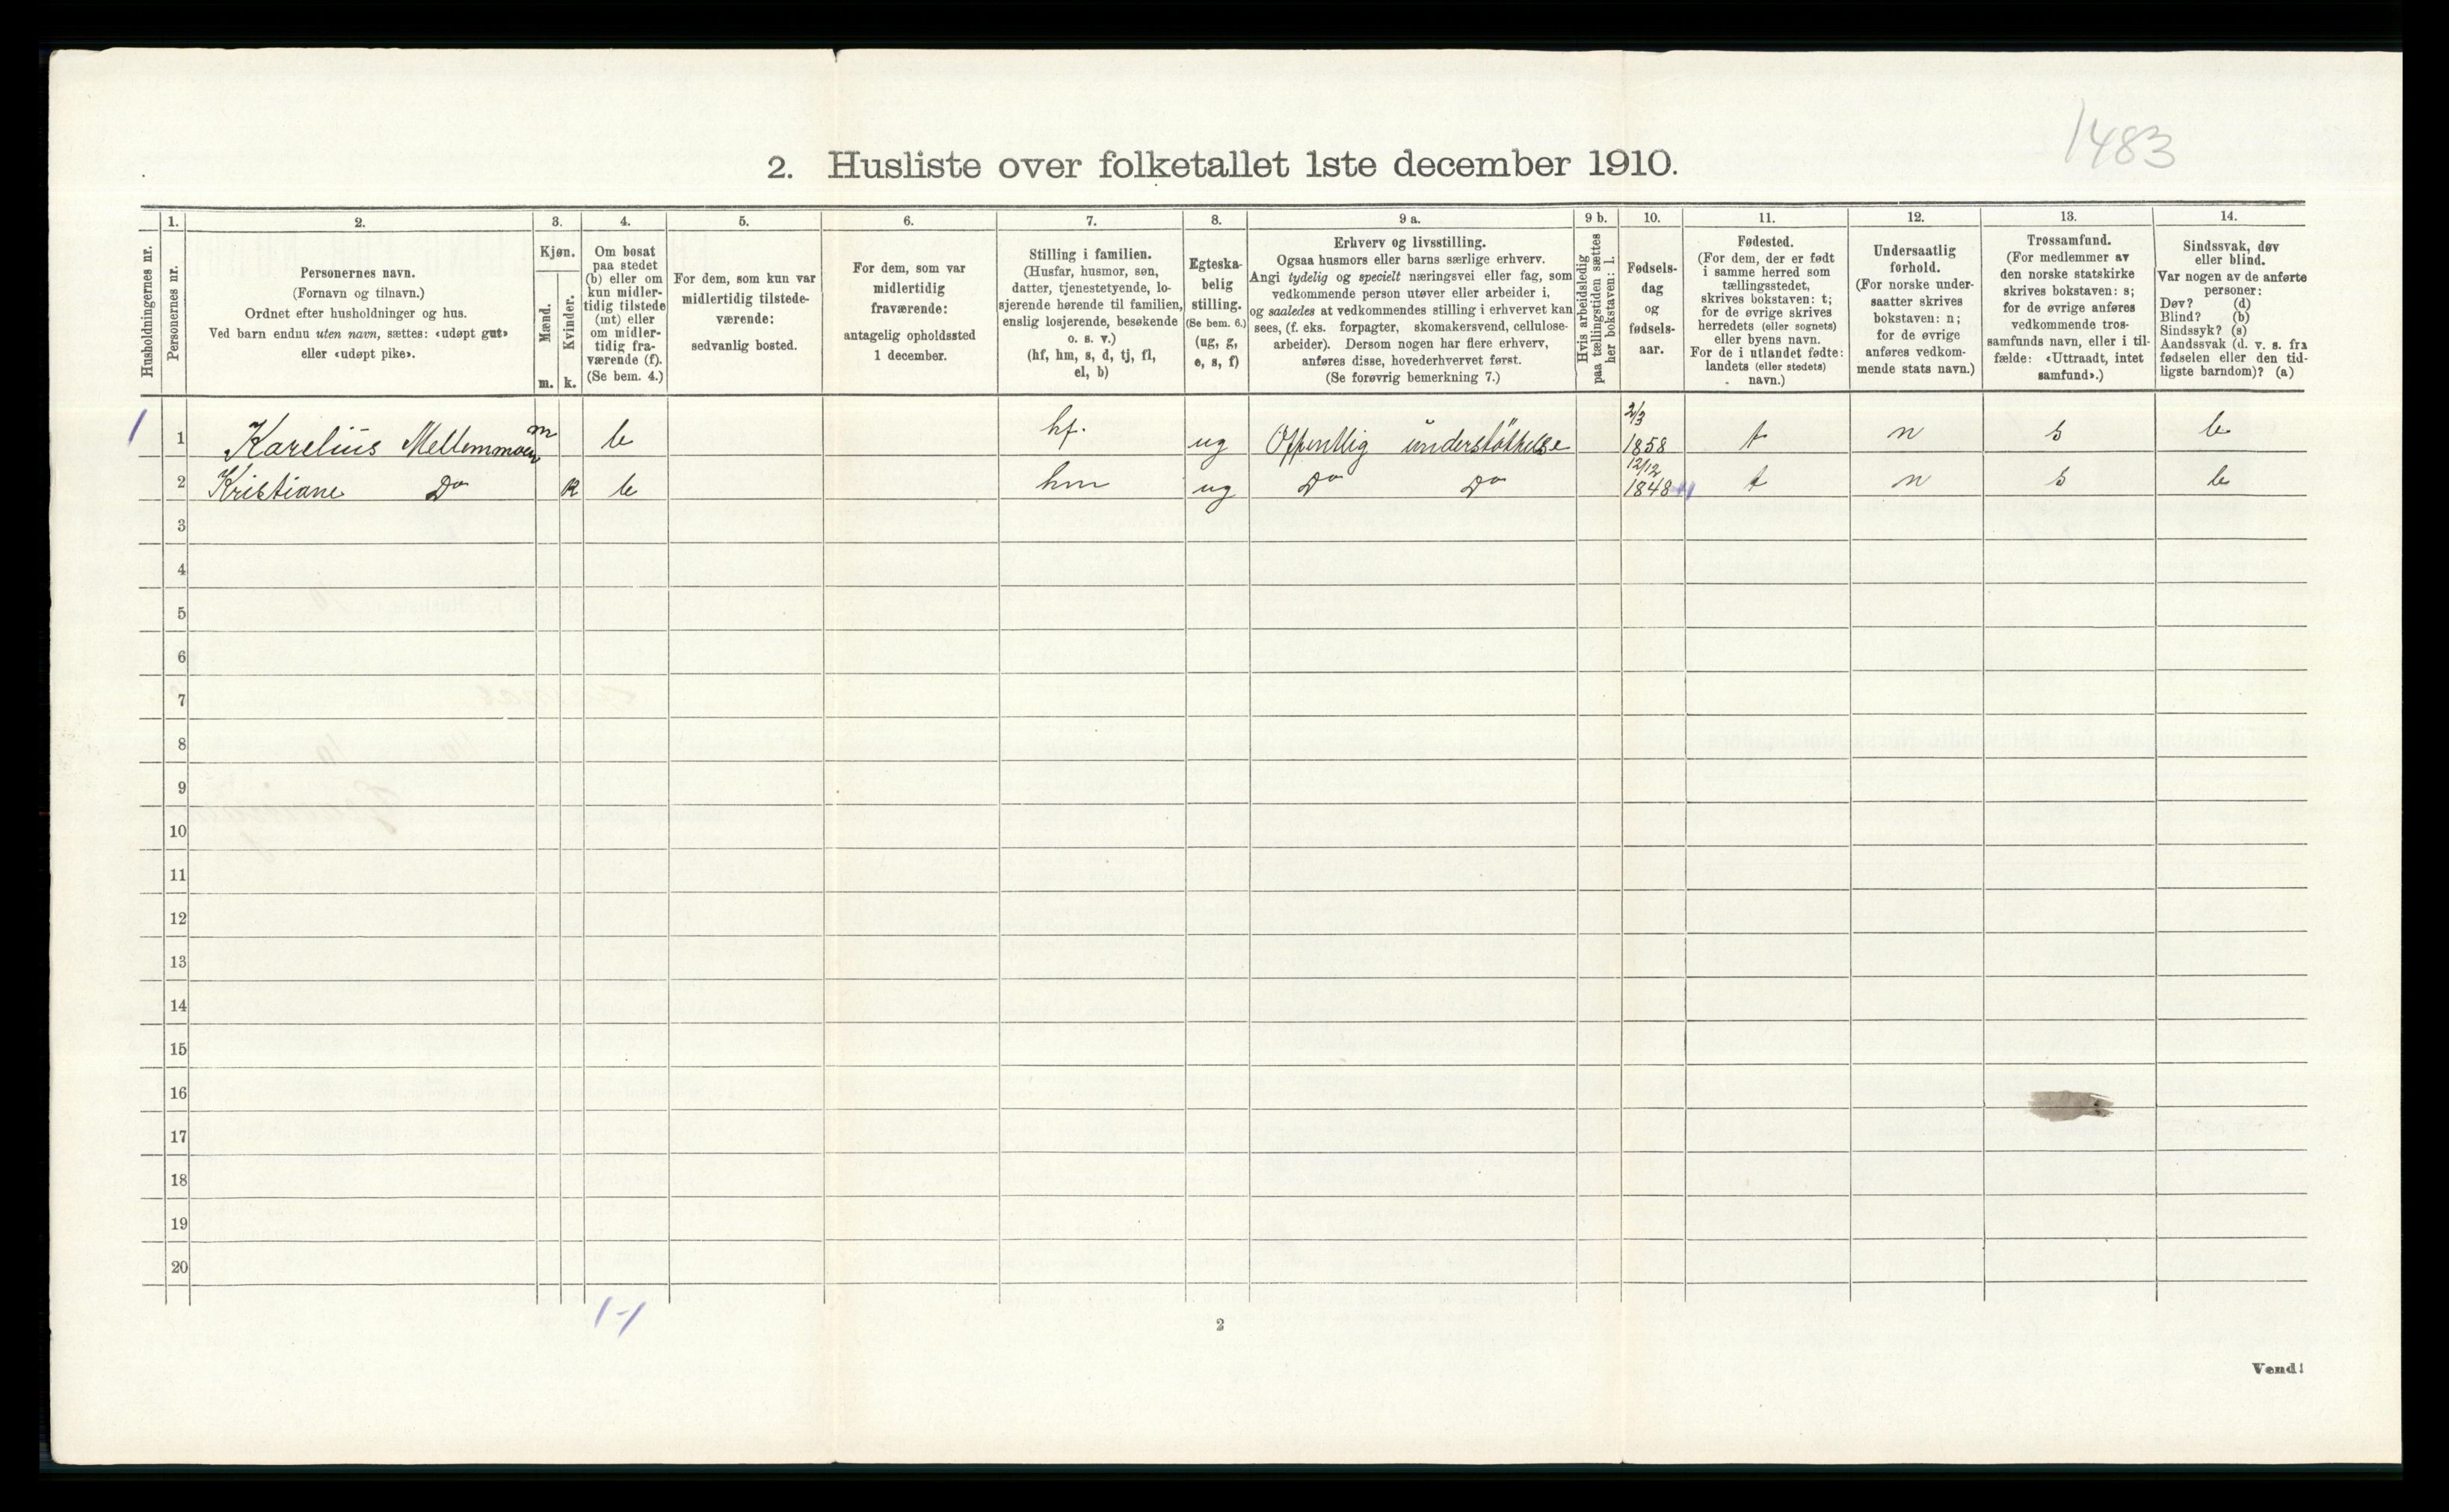 1483
2. Husliste over folketallet 1ste december 1910.
Husholdningernes nr.
1.
Personernes nr.
2.
Personernes navn.
(Fornavn og tilnavn.)
Ordnet efter husholdninger og hus.
Ved barn endnu uten navn, sættes: «udøpt gut»
eller «udøpt pike».
3.
Kjøn.
Mænd.
Kvinder.
m. k.
4.
Om bosat
paa stedet
(b) eller om
kun midler-
tidig tilstede
(mt) eller
om midler-
tidig fra-
værende (f).
(Se bem. 4.)
5.
For dem, som kun var
midlertidig tilstede-
værende:
sedvanlig bosted.
6.
For dem, som var
midlertidig
fraværende:
antagelig opholdssted
1 december.
7.
Stilling i familien.
(Husfar, husmor, søn,
datter, tjenestetyende, lo-
sjerende hørende til familien,
enslig losjerende, besøkende
o. s. v.)
(hf, hm, s, d, tj, fl,
el, b)
8.
Egteska-
belig
stilling.
(Se bem. 6.)
(ug, g,
e, s, f)
9 a.
Erhverv og livsstilling.
Ogsaa husmors eller barns særlige erhverv.
Angi tydelig og specielt næringsvei eller fag, som
vedkommende person utøver eller arbeider i,
og saaledes at vedkommendes stilling i erhvervet kan
sees, (f. eks. forpagter, skomakersvend, cellulose-
arbeider). Dersom nogen har flere erhverv,
anføres disse, hovederhvervet først.
(Se forøvrig bemerkning 7.)
9 b.
Hvis arbeidsledig
paa tællingstiden sættes
her bokstaven: l.
10.
Fødsels-
dag
og
fødsels-
aar.
11.
Fødested.
(For dem, der er født
i samme herred som
tællingsstedet,
skrives bokstaven: t;
for de øvrige skrives
herredets (eller sognets)
eller byens navn.
For de i utlandet fødte:
landets (eller stedets)
navn.)
12.
Undersaatlig
forhold.
(For norske under-
saatter skrives
bokstaven: n;
for de øvrige
anføres vedkom-
mende stats navn.)
13.
Trossamfund.
(For medlemmer av
den norske statskirke
skrives bokstaven: s;
for de øvrige anføres
vedkommende tros-
samfunds navn, eller i til-
fælde: «Uttraadt, intet
samfund».)
14.
Sindssvak, døv
eller blind.
Var nogen av de anførte
personer:
Døv? (d)
Blind? (b)
Sindssyk? (s)
Aandssvak (d. v. s. fra
fødselen eller den tid-
ligste barndom)? (a)
1 1 Karelius Mellemmoen m b hf. ug Offentlig understøttelse 2/3 1858 t n s b
2 Kristiane Do k b hm ug Do Do 12/12 1848 t n s b
3
4
5
6
7
8
9
10
11
12
13
14
15
16
17
18
19
20
1-1
2
Vend!